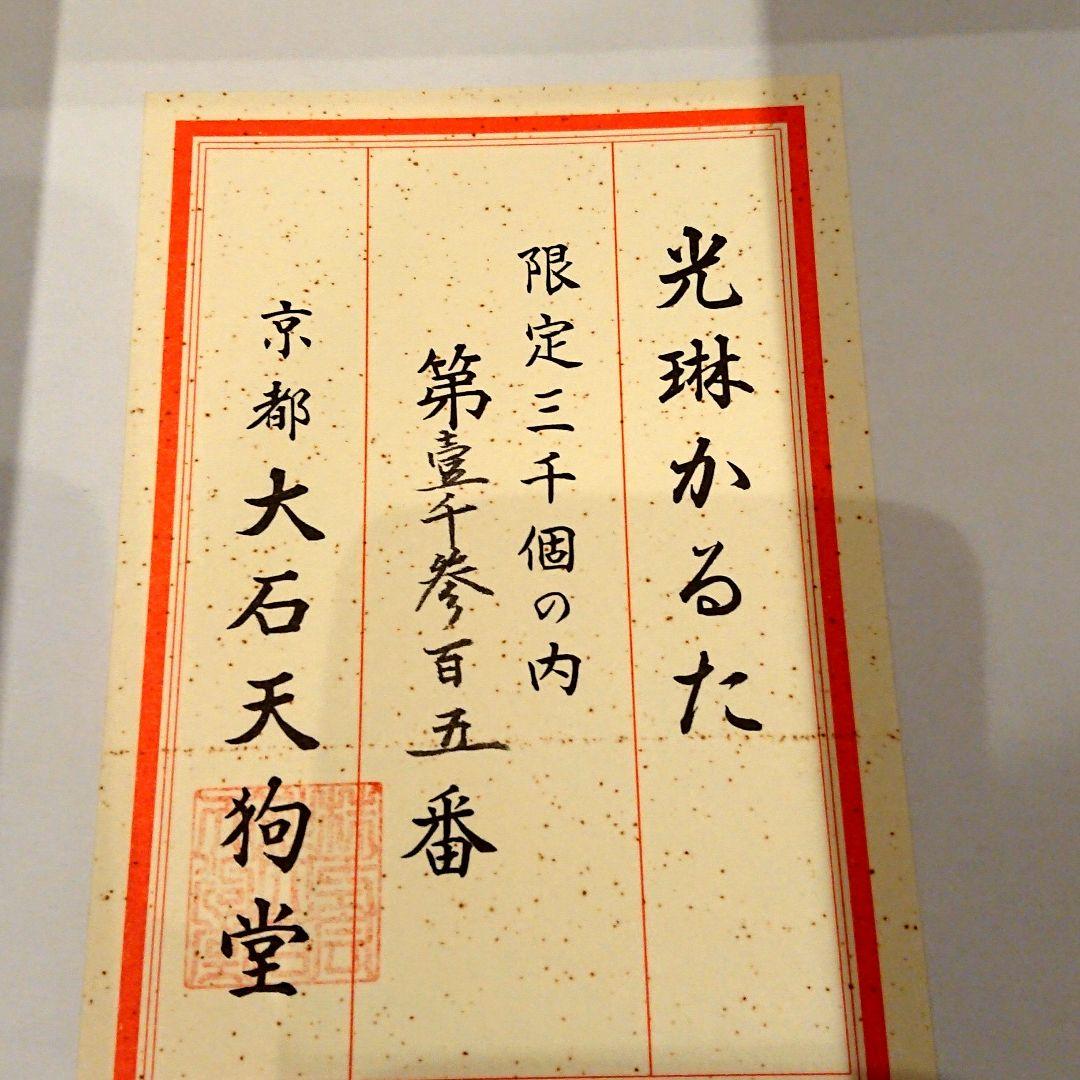 光琳かるた
限定三千個の内
第壹千參百五番
京都大石天狗堂